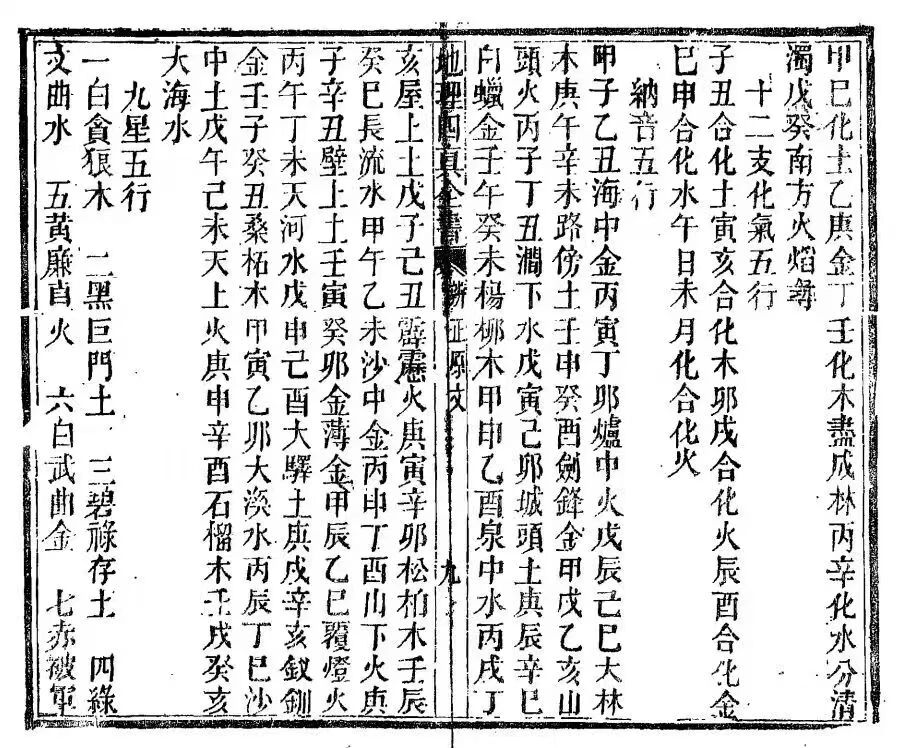 甲巳化土乙庚金丁壬化木盡成林丙辛化水分清
濁戊癸南方火焰尋
十二支化氣五行
子丑合化土寅亥合化木卯戌合化火辰酉合化金
巳申合化水午日未月化合化火
納音五行
甲子乙丑海中金丙寅丁卯爐中火戊辰己巳大林
木庚午辛未路傍土壬申癸酉劍鋒金甲戌乙亥山
頭火丙子丁丑澗下水戊寅己卯城頭土庚辰辛巳
白蠟金壬午癸未楊柳木甲申乙酉泉中水丙戌丁
地理四真全書 辨正原文 九
亥屋上土戊子己丑霹靂火庚寅辛卯松柏木壬辰
癸巳長流水甲午乙未沙中金丙申丁酉山下火庚
子辛丑壁上土壬寅癸卯金薄金甲辰乙巳覆燈火
丙午丁未天河水戊申己酉大驛土庚戌辛亥釵釧
金壬子癸丑桑柘木甲寅乙卯大溪水丙辰丁巳沙
中土戊午己未天上火庚申辛酉石榴木壬戌癸亥
大海水
九星五行
一白貪狼木 二黑巨門土 三碧祿存土 四綠
文曲水 五黃廉貞火 六白武曲金 七赤破軍